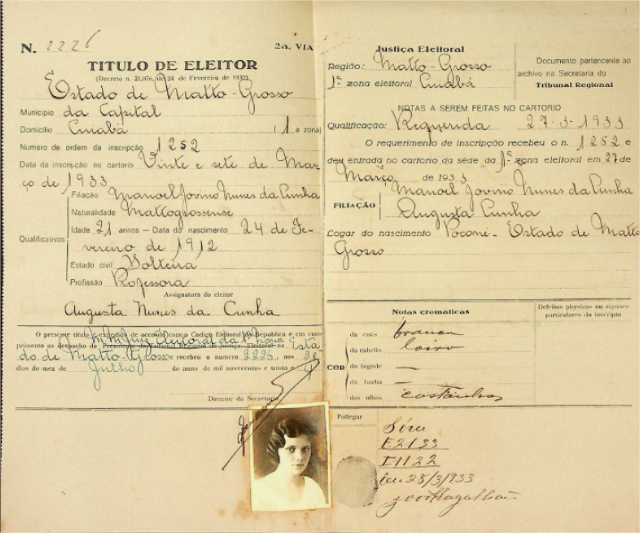 N. 2226
2a. VIA
TITULO DE ELEITOR
Estado de Matto-Grosso
Municipio da Capital
Domicilio Cuiabá (1a zona)
Numero de ordem da inscripção 1252
Data da inscripção no cartorio Vinte e sete de Mar
ço de 1933
Qualificativos
Filiação Manoel Jovino Nunes da Cunha
Naturalidade Mattogrossense
Idade 21 annos — Data do nascimento 24 de Fe-
vereiro de 1912
Estado civil Solteira
Profissão Professora
Assignatura do eleitor
Augusta Nunes da Cunha
O presente titulo é expedido de accordo
do de Matto-Grosso e recebeu o numero 2226 aos
dias do mez de Julho do anno de mil novecentos e trinta e
Director da Secretaria
Justiça Eleitoral
Região: Matto-Grosso
1ª zona eleitoral Cuiabá
Documento pertencente ao
archivo na Secretaria do
Tribunal Regional
NOTAS A SEREM FEITAS NO CARTORIO
Qualificação: Requerida 27-3-1933
O requerimento de inscripção recebeu o n. 1252 e
deu entrada no cartorio da séde da 1ª zona eleitoral em 27 de
Março de 1933
FILIAÇÃO
Manoel Jovino Nunes da Cunha
Augusta Cunha
Logar do nascimento Poconé - Estado de Matto
Grosso
Notas cromaticas
Defeitos physicos ou signaes
particulares do inscripto
COR
da cutis branca
do cabello loiro
do bigode —
da barba —
dos olhos castanhos
Polegar
Série
E2133
I1122
28/3/933